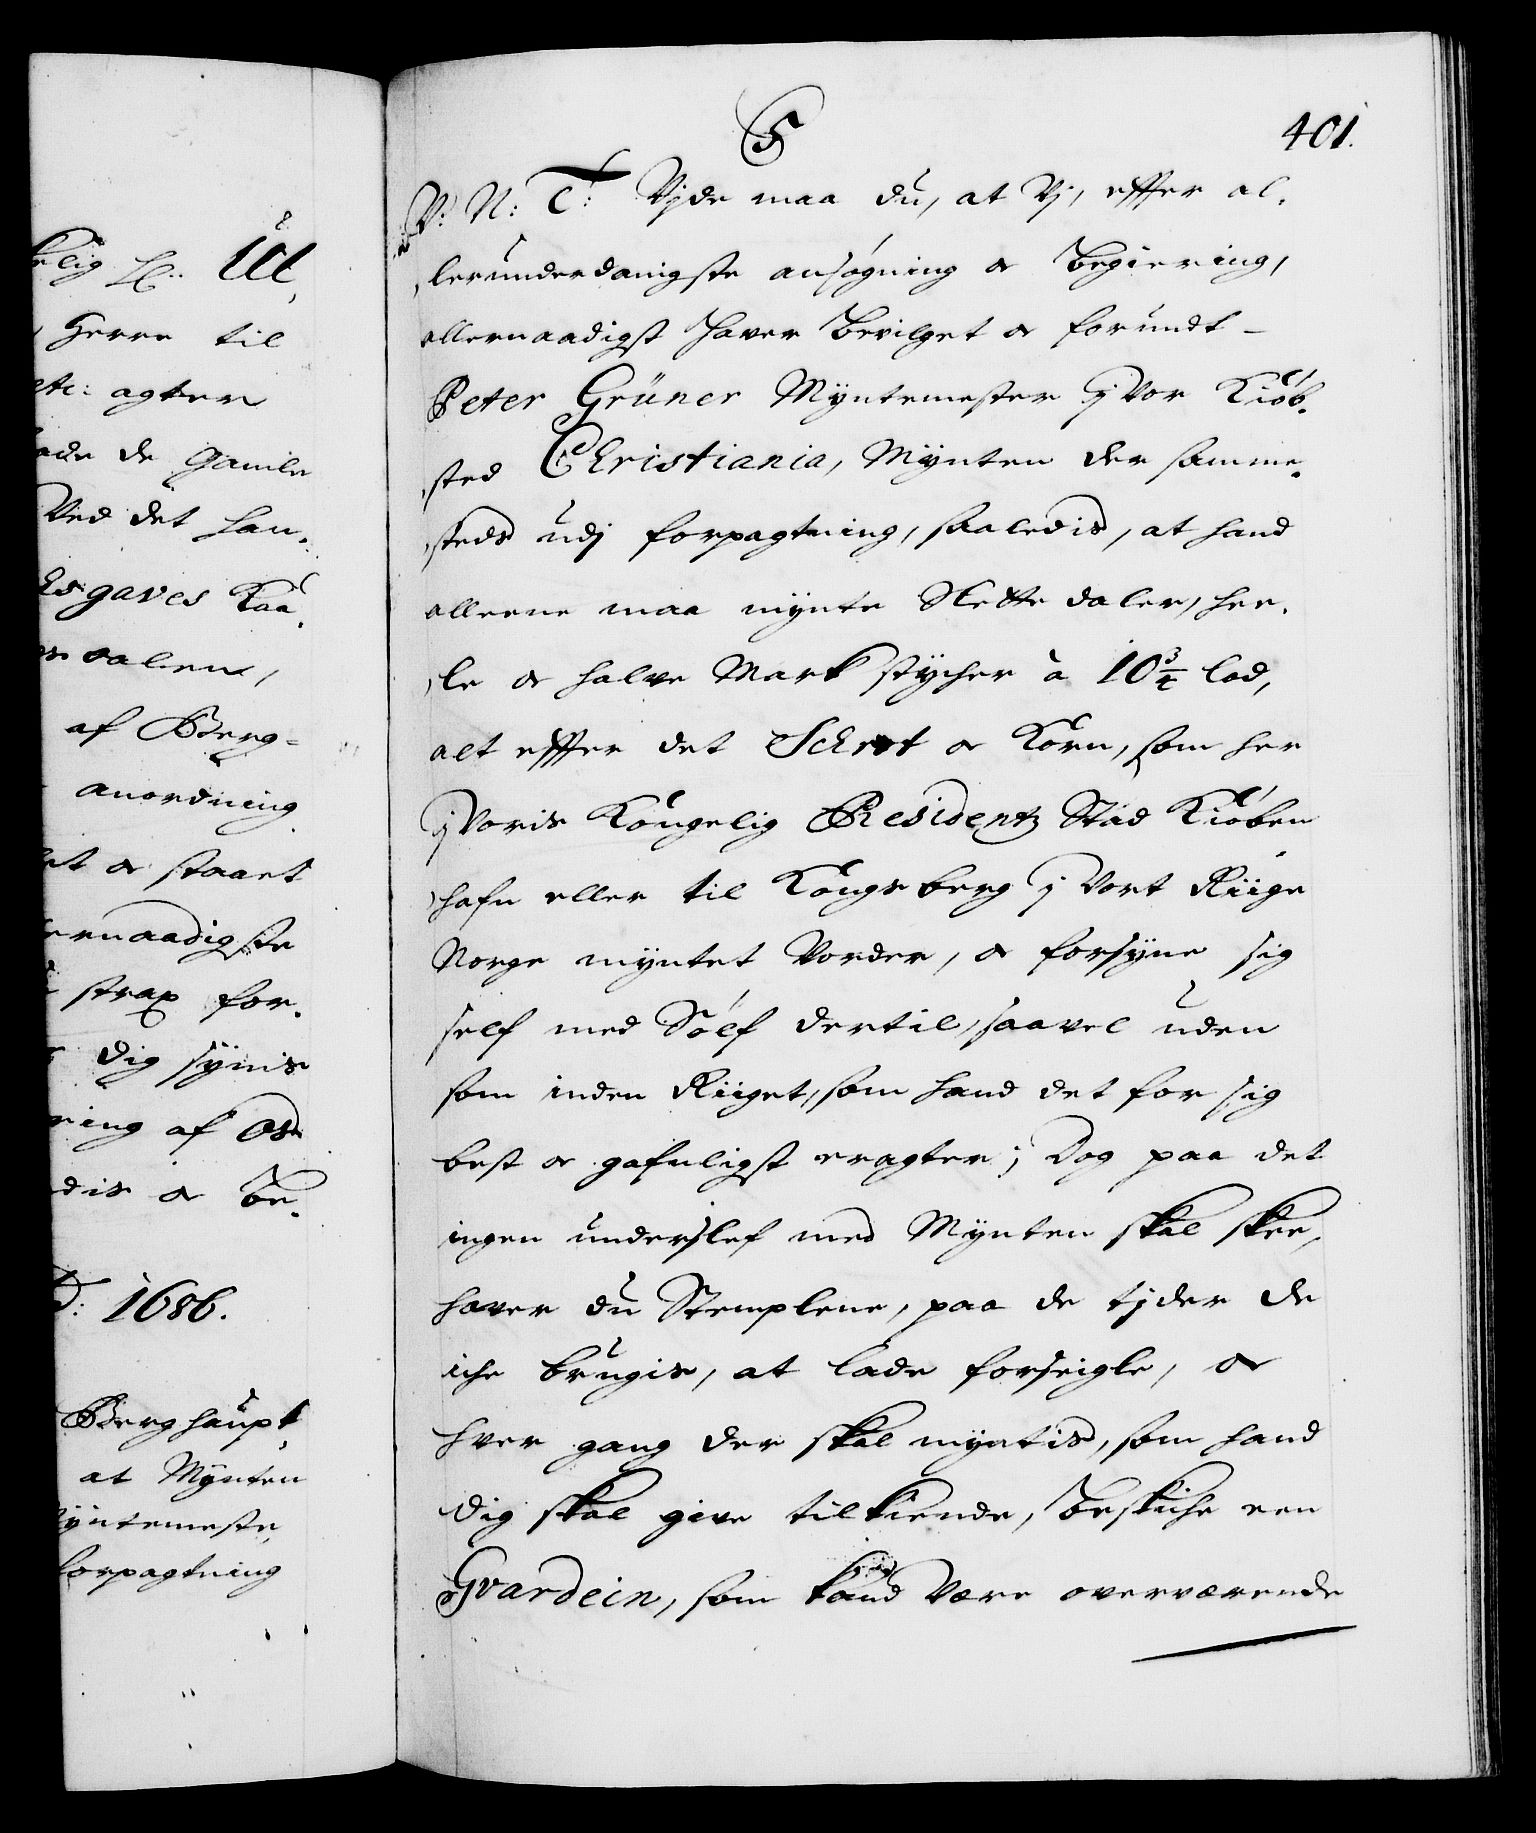 elig H: Ut,
Herre til
etc: agter
lade de gamle
Ved det han,
Esgaves Kaa,
dalen,
af Berg=
anordning
let oc staaet
ernaadigste
strax for,
dig synis
ring af Os
dis oc be,
D: 1686.
Berghaupt,
at Mynten
Myntemeste,
forpagtning
S
401.
V: N: T: Vjde maa du, at Vj, efter al,
lerunderdanigste ansøgning oc begiering,
allernaadigst haver bevilget oc forundt
Peter Grüner Myntemester j Vor Kiøb,
sted Christiania, Mynten der samme,
steds udj forpagtning, saaledis, at hand
alleene maa mynte Slette daler, hee,
le oc halve Mark stycher à 10¾ lod,
alt efter det Schrot oc Korn, som her
j Voris Kongelig Residentz Stad Kiøben
hafn eller til Kongsberg j Vort Riige
Norge myntet Vorder, oc forsyne sig
self med Sølf dertil, saavel uden
som inden Riiget, som hand det for sig
best oc gafnligst eragter; Dog paa det
ingen underslef med Mynten skal skee,
haver du Stemplene, paa de tjder de
iche brugis, at lade forseigle, oc
hver gang der skal myntis, som hand
dig skal give tilkiende, beskiche een
Gvardein, som kand Være overværende